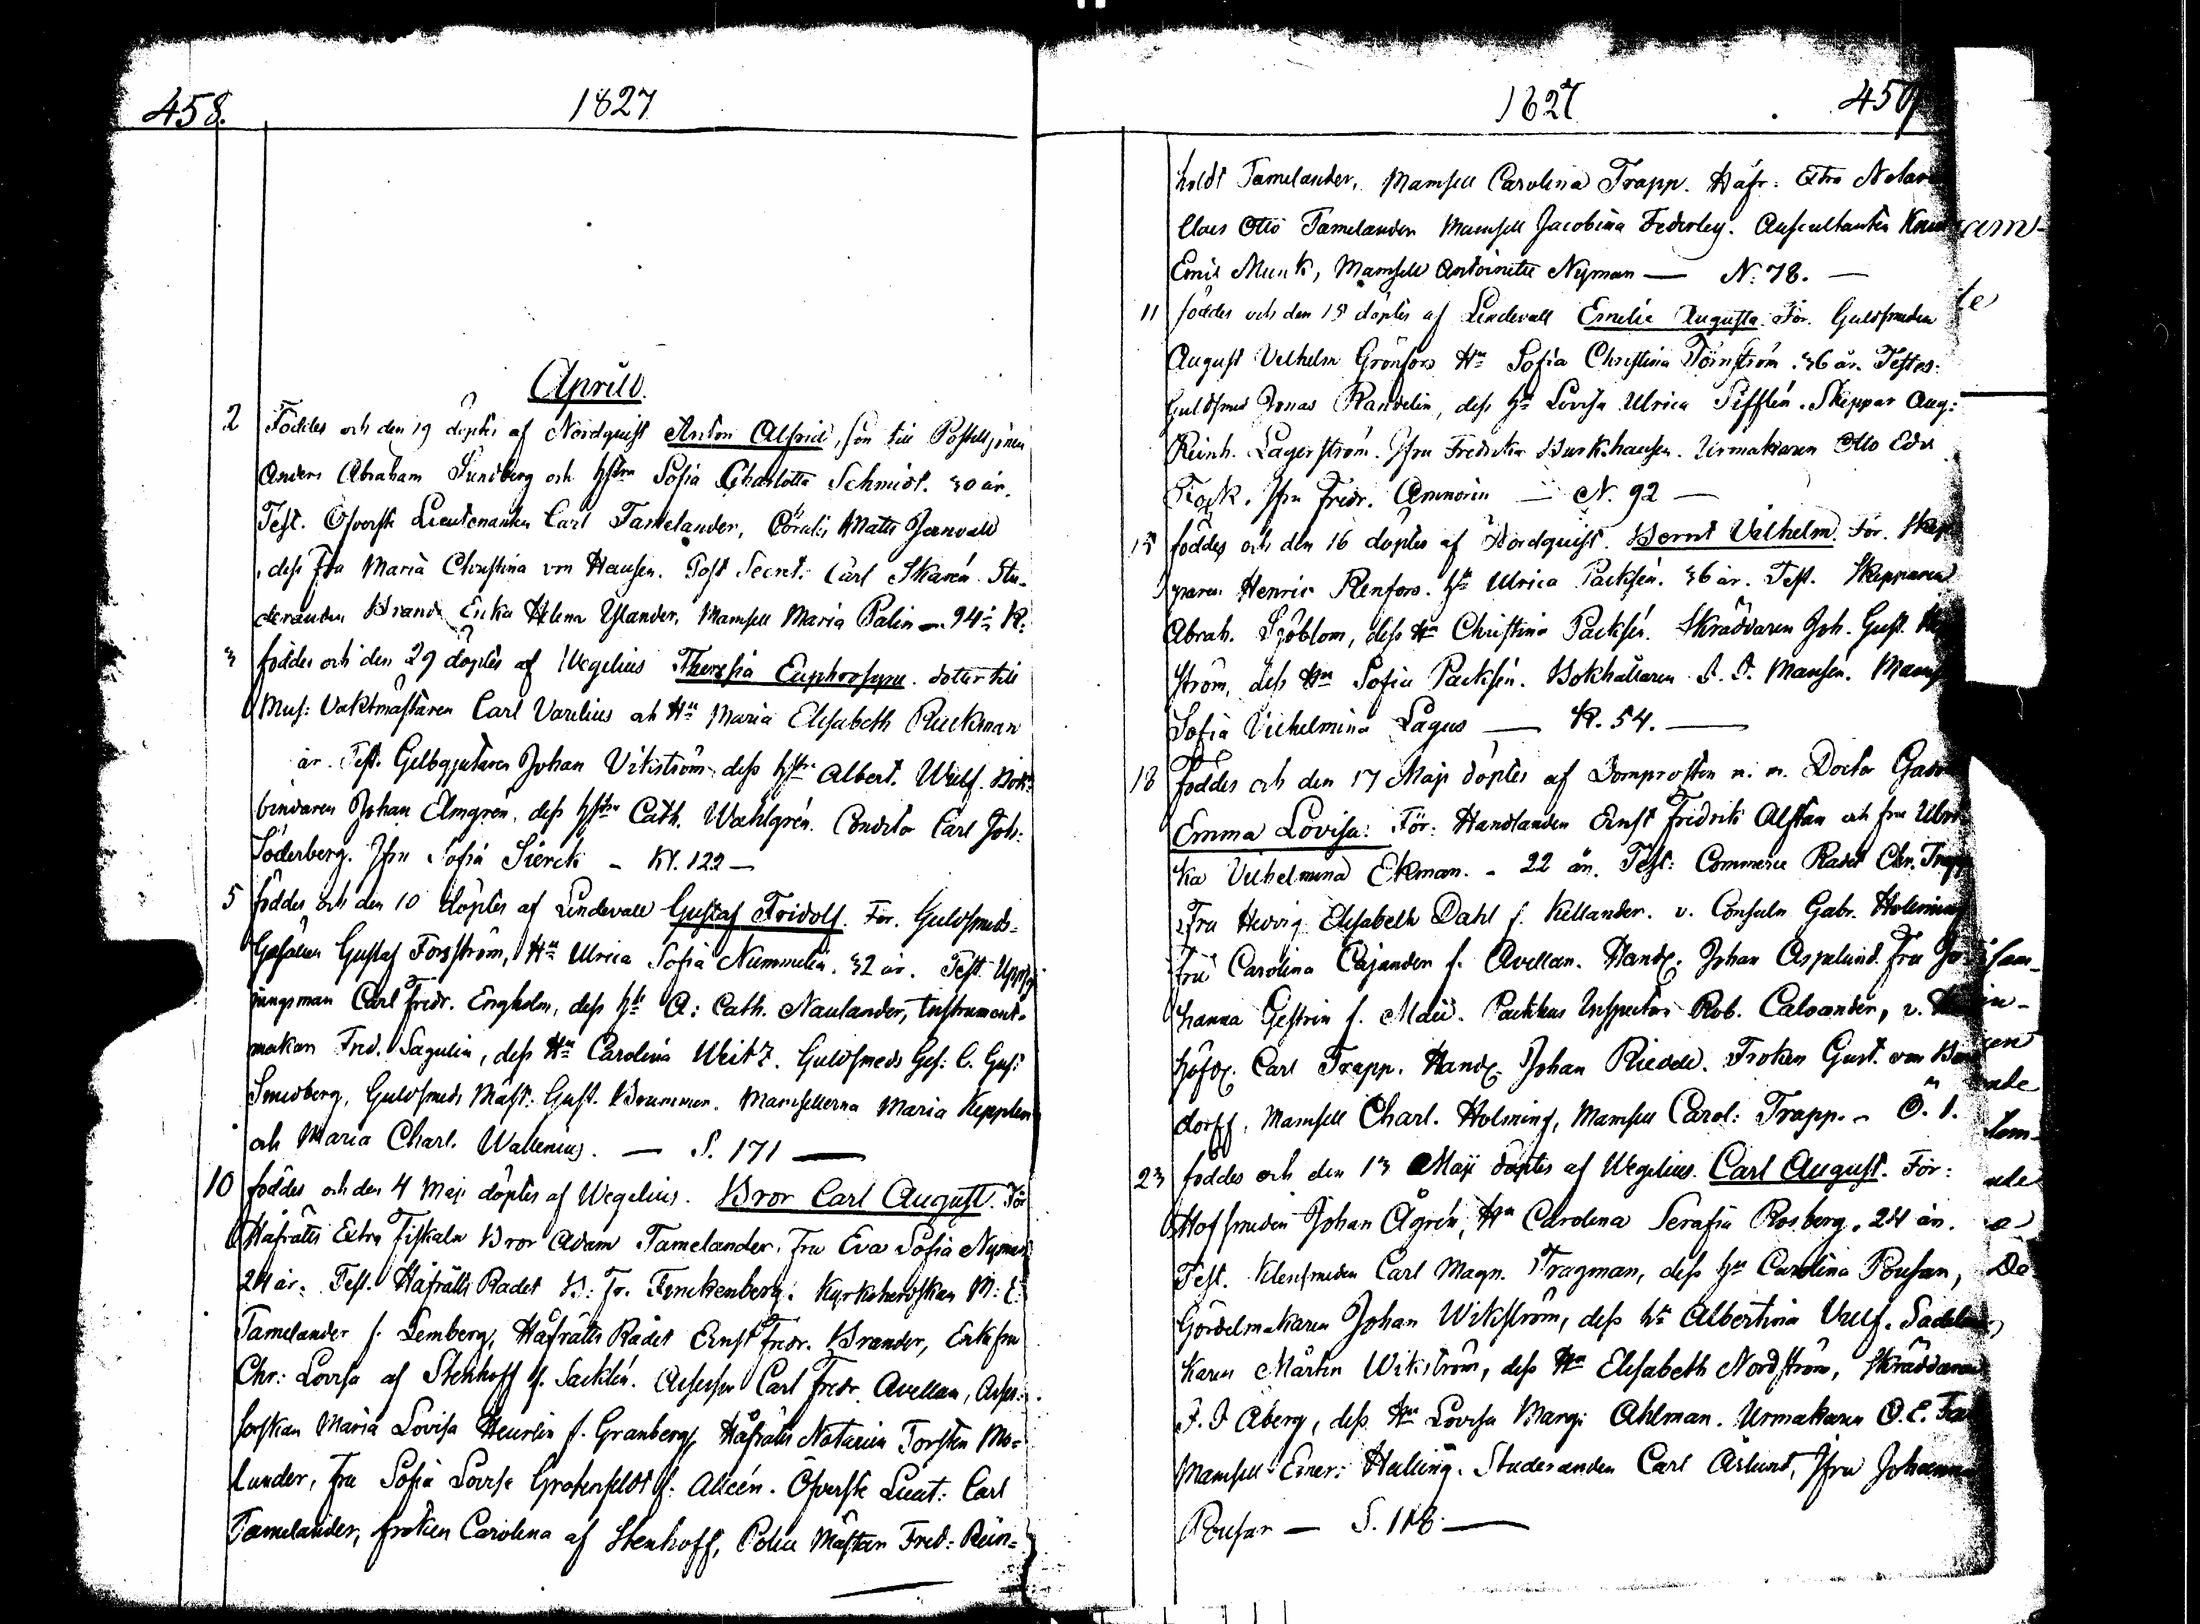 458.
1827
Aprill.
2 Föddes och den 19 döptes af Nordquist Anton Alfrid, son till Postiljonen
Anders Abraham Sundberg och hstru Sofia Charlotta Schmidt. 30 år.
Test. Öfverste Lieutenanten Carl Tamelander, Mats Jernvall
dess Fru Maria Christina von Hausen. Post Secret. Carl Skarén Stu-
deranden Brand Erika Helena Ylander, Mamsell Maria Palin — 94 K.
3 föddes och den 29 döptes af Wegelius Theresia Euphrosyne. dotter till
Mus: Vaktmästaren Carl Varelius och Hu Maria Elisabeth Ruckman
år. Test. Gelbgjutaren Johan Vikström dess hstru Albert. Wulf. Bok-
bindaren Johan Elmgrén, dess hstru Cath. Wahlgrén. Conditor Carl Joh:
Söderberg. Jfru Sofia Sierck – Kl. 122 —
5 föddes och den 10 döptes af Lindevall Gustaf Fridolf. För. Guldsmeds-
Gesällen Gustaf Forsström, Hu Ulrica Sofia Nummelin. 32 år. Test. Upsyg
ningsman Carl Fredr. Engholm, dess hu A: Cath. Naulander, Instrument-
makar Fred. Sagulin, dess Hu Carolina Weitz. Guldsmeds Ges: C. Gust
Smedberg, Guldsmeds Mäst. Gust. Brummer. Mamsellerna Maria Kepplen
och Maria Charl. Wallenius. — S. 171 —
10 föddes och den 4 Maji döptes af Wegelius. Bror Carl August. För
Håfrätts Extra Fiskaln Bror Adam Tamelander. Fru Eva Sofia Nyman
24 år. Test. Håfrätts Rådet B: Fr. Finckenberg. Kyrkoherdskan M: C:
Tamelander f. Lemberg, Håfrätts Rådet Ernst Fredr. Brander, Enkefru
Chr: Lovisa af Stenhoff f. Sacklén. Assessor Carl Fredr. Avellan, Asses-
sorskan Maria Lovisa Heurlin f. Granberg, Håfrätts Notarien Torsten Mo-
lander, Fru Sofia Lovisa Grotenfeldt f. Alléen. Öfverste Lieut: Carl
Tamelander, fröken Carolina af Stenhoff, Police Mästar Fred: Rein-
1827
459
holdt Tamelander, Mamsell Carolina Trapp. Håfr: Extra Notar
Claes Otto Tamelander Mamsell Jacobina Federley. Auscultanten Knut
Emil Munk, Mamsell Antoinette Nyman — N. 78. —
11 föddes och den 15 döptes af Lindevall Emelie Augusta. För. Guldsmeden
August Vilhelm Grönfors Hu Sofia Christina Törnström. 36 år. Testes:
Guldsmed Jonas Randelin, dess hu Lovisa Ulrica Sifflén. Skeppar Aug:
Reinh. Lagerström. Jfru Fredrika Burkhausen. Urmakaren Otto Edv.
Fock. Jfru Fredr. Amnorin — N. 92 —
15 föddes och den 16 döptes af Nordquist. Bernt Vilhelm. För. Skep
paren Henric Renfors. hu Ulrica Packsén. 36 år. Test. Skepparen
Abrah. Sjöblom, dess Hu Christina Packsén. Skräddaren Joh. Gust.
ström, dess Hu Sofia Packsén. Bokhållaren J. J. Mansén. Mams
Sofia Vilhelmina Lagus — K. 54. —
18 föddes och den 17 Maji döptes af Domprosten m. m. Doctor Gado
Emma Lovisa: För: Handlanden Ernst Fredrik Alftan och fru Ulri
ka Vilhelmina Ekman. – 22 år. Test: Commerce Rådet Chr. Trapp
Fru Hedvig Elisabeth Dahl f. Kellander. v. Consuln Gabr. Holming
Fru Carolina Cajander f. Avellan. Handl. Johan Aspelund. Fru Jo
hanna Gestrin f. Malé. Packhus Inspector Rob. Calvander, v.
höfd. Carl Trapp. Handl. Johan Riedell. Fröken Gust. von
dorff, Mamsell Charl. Holming, Mamsell Carol: Trapp. – Ö. 1.
23 föddes och den 13 Maji döptes af Wegelius. Carl August. För:
Hofsmeden Johan Ågrén, Hu Carolina Serafia Rosberg. 24 år.
Test. Klensmeden Carl Magn. Tragman, dess hu Carolina Pousar,
Gördelmakaren Johan Wikström, dess hu Albertina Vulf. Sadelma
karen Mårten Wikström, dess Hu Elisabeth Nordström, Skräddaren
J. J Åberg, dess Hu Lovisa Marg: Ahlman. Urmakaren O. E. Fock
Mamsell Emer: Helling. Studeranden Carl Åslund, Jfru Johanna
Pousar — S. 118. —